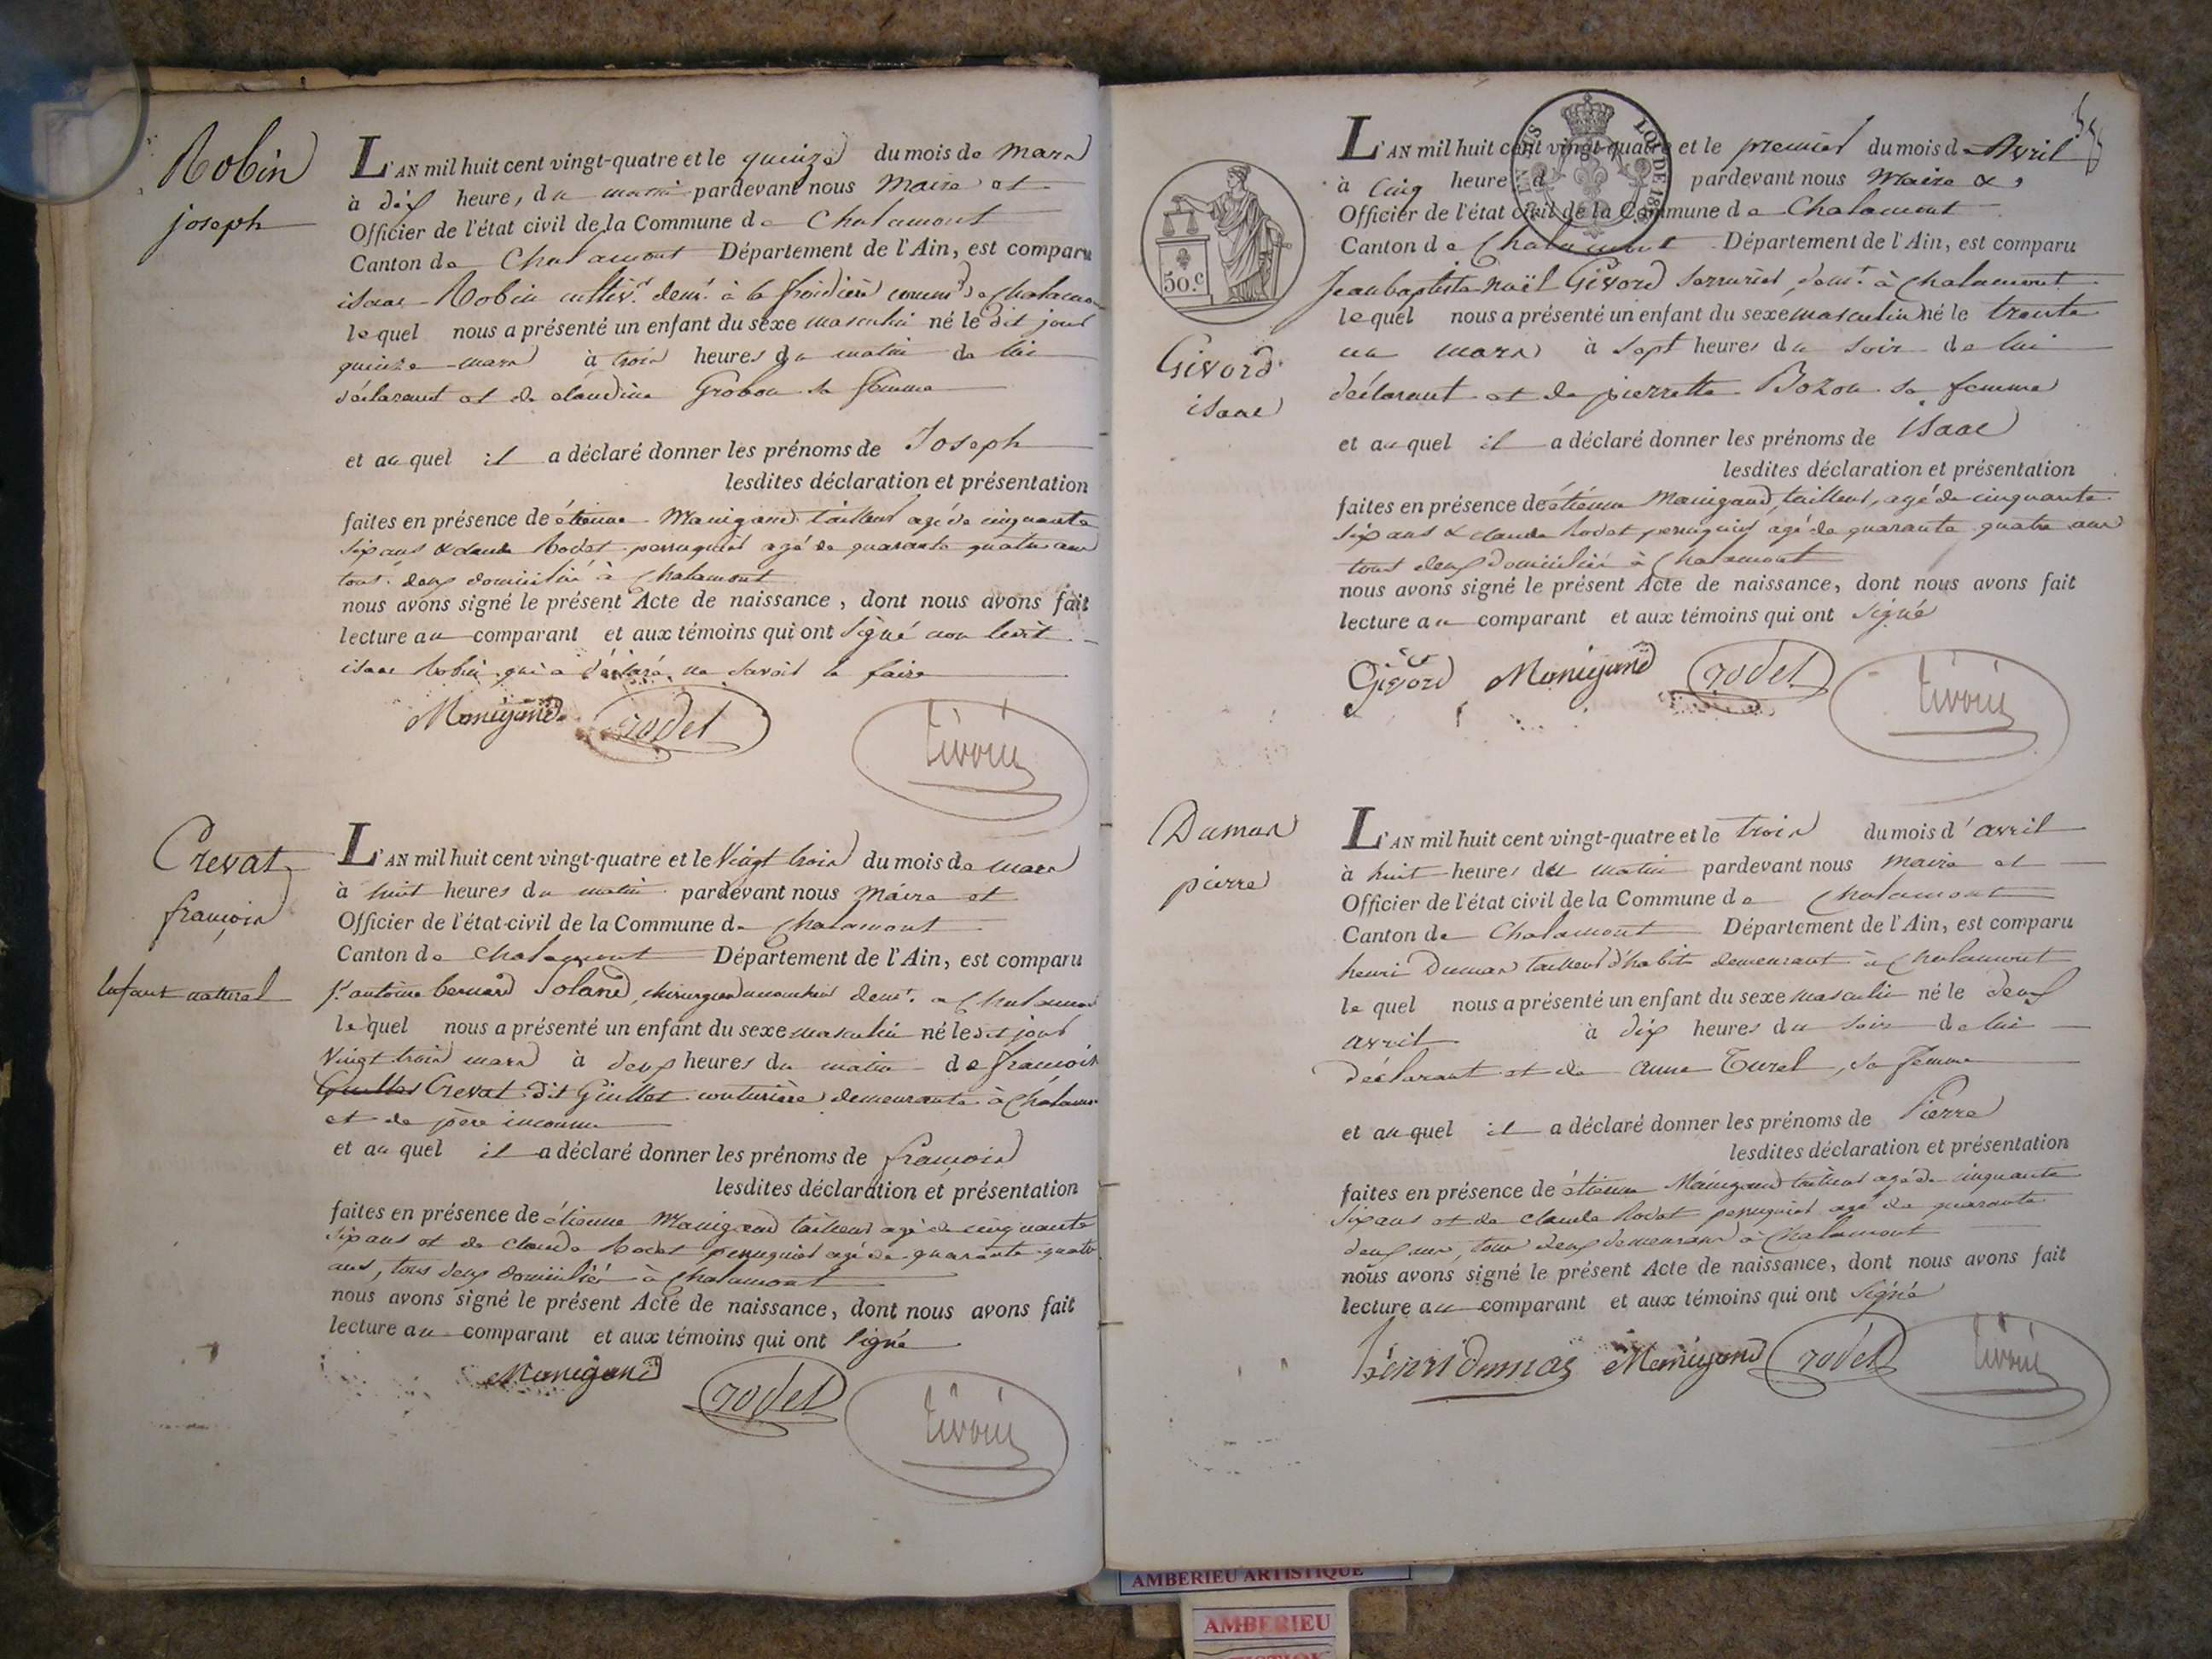 Robin
joseph
L'AN mil huit cent vingt-quatre et le quinze du mois de mars
à dix heure, du matin pardevant nous Maire et
Officier de l'état civil de la Commune de Chalamont
Canton de Chalamont Département de l'Ain, est comparu
isaac Robin cultivr. demt. à la froidière commne de Chalamon
lequel nous a présenté un enfant du sexe masculin né le dit jour
quinze mars à trois heures du matin de lui
déclarant et de claudine Grobon sa femme
et auquel il a déclaré donner les prénoms de Joseph
lesdites déclaration et présentation
faites en présence de étienne Manigand tailleur agé de cinquante
six ans & claude Rodet perruquier agé de quarante quatre ans
tous deux domicilié à Chalamont
nous avons signé le présent Acte de naissance, dont nous avons fait
lecture au comparant et aux témoins qui ont signé non ledit
isaac Robin qui a déclaré ne savoir le faire
Manigand rodet
Crevat
françois
Enfant naturel
L'AN mil huit cent vingt-quatre et le Vingt trois du mois de mars
à huit heures du matin pardevant nous Maire et
Officier de l'état civil de la Commune de Chalamont
Canton de Chalamont Département de l'Ain, est comparu
antoine bernard Soland, chirurgien accoucheur demt. a Chalamont
lequel nous a présenté un enfant du sexe masculin né ledit jour
Vingt trois mars à deux heures du matin de françoise
Guillet Crevat dit Guillet couturière demeurante à Chalamt
et de père inconnu
et auquel il a déclaré donner les prénoms de françois
lesdites déclaration et présentation
faites en présence de étienne Manigand tailleur agé de cinquante
six ans et de Claude Rodet perruquier agé de quarante quatre
ans, tous deux domiciliés à Chalamont
nous avons signé le présent Acte de naissance, dont nous avons fait
lecture au comparant et aux témoins qui ont signé
Manigand rodet
50.c
LOI DE
Givord
isaac
L'AN mil huit cent vingt-quatre et le premier du mois d Avril
à Cinq heure d pardevant nous Maire &
Officier de l'état civil de la Commune de Chalamont
Canton de Chalamont Département de l'Ain, est comparu
Jean baptiste noël Givord serrurier, demt. à Chalamont
lequel nous a présenté un enfant du sexe masculin né le trente
un mars à Sept heures du soir de lui
déclarant et de pierrette Bozon sa femme
et auquel il a déclaré donner les prénoms de isaac
lesdites déclaration et présentation
faites en présence de étienne Manigand, tailleur, agé de cinquante
six ans & claude Rodet perruquier agé de quarante quatre ans
tous deux domicilié à Chalamont
nous avons signé le présent Acte de naissance, dont nous avons fait
lecture au comparant et aux témoins qui ont signé
Givord Manigand rodet
Dumas
pierre
L'AN mil huit cent vingt-quatre et le trois du mois d'avril
à huit heures du matin pardevant nous maire et
Officier de l'état civil de la Commune de Chalamont
Canton de Chalamont Département de l'Ain, est comparu
henri Dumas tailleur d'habit demeurant à Chalamont
lequel nous a présenté un enfant du sexe masculin né le deux
avril à dix heures du soir de lui
déclarant et de anne Turel, sa femme
et auquel il a déclaré donner les prénoms de Pierre
lesdites déclaration et présentation
faites en présence de étienne Manigand tailleur agé de cinquante
six ans et de claude Rodet perruquier agé de quarante
deux ans, tous deux demeurans à Chalamont
nous avons signé le présent Acte de naissance, dont nous avons fait
lecture au comparant et aux témoins qui ont signé
henri dumas Manigand rodet
AMBERIEU ARTISTIQUE
AMBERIEU